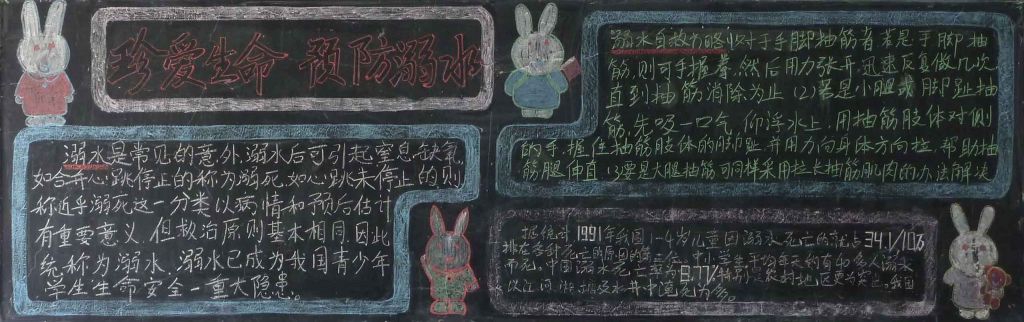 珍爱生命 预防溺水
溺水是常见的意外,溺水后可引起窒息缺氧
如合并心跳停止的称为溺死,如心跳未停止的则
称近乎溺死这一分类以病情和预后估计
有重要意义,但救治原则基本相同,因此
统称为溺水、溺水已成为我国青少年
学生生命安全一重大隐患。
溺水自救方略(1)对于手脚抽筋者若是手脚抽
筋,则可手握拳,然后用力张开,迅速反复做几次
直到抽筋消除为止(2)若是小腿或脚趾抽
筋,先吸一口气,仰浮水上,用抽筋肢体对侧
的手,握住抽筋肢体的脚趾,并用力向身体方向拉,帮助抽
筋腿伸直(3)要是大腿抽筋可同样采用拉长抽筋肌肉的办法解决
据统计1991年我国1-4岁儿童因溺水死亡的 34.1/10万
排在各种死亡的原因的第 中小学生平均每天约有40多人溺水
而死,中国溺水死亡率为8.77% 特别 农村地区更为突出。我国
以江河湖 水井中 为多。